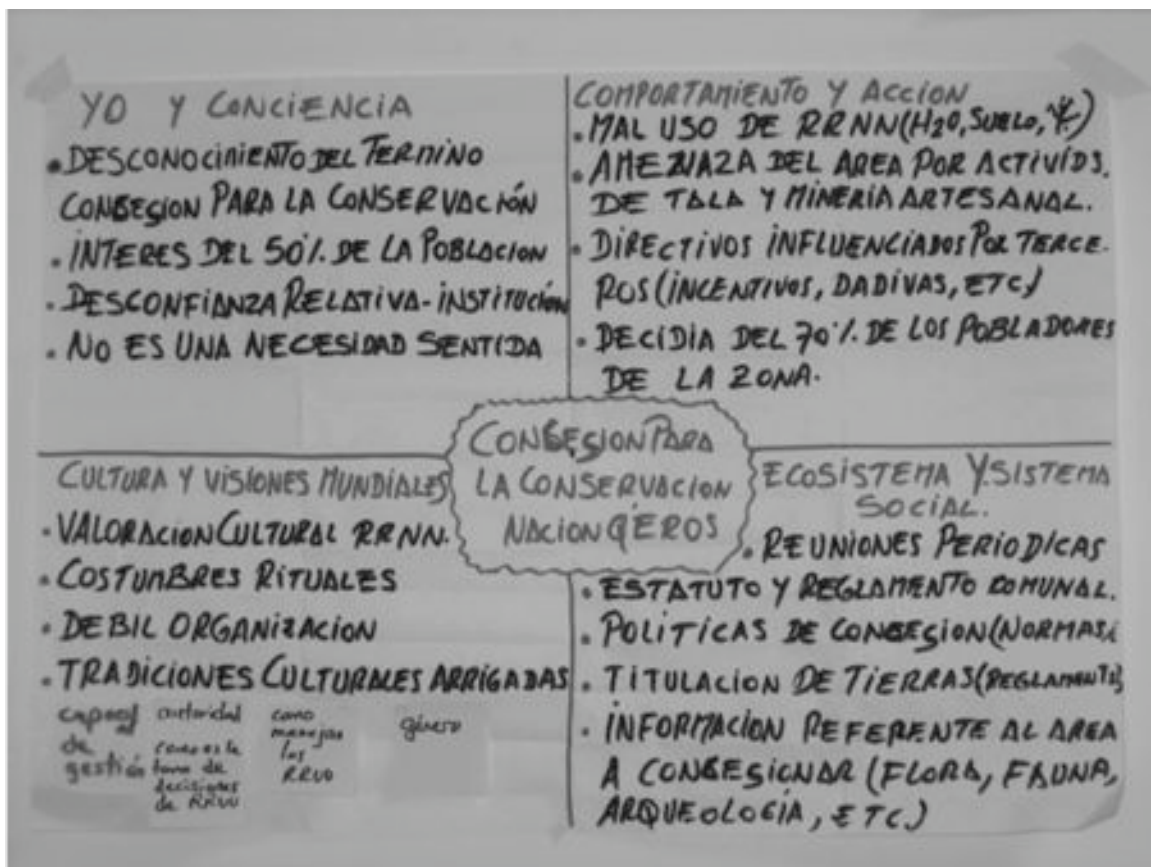 YO Y CONCIENCIA
• DESCONOCIMIENTO DEL TERMINO
CONSESION PARA LA CONSERVACIÓN
• INTERES DEL 50% DE LA POBLACION
• DESCONFIANZA RELATIVA - INSTITUCIÓN
• NO ES UNA NECESIDAD SENTIDA
COMPORTAMIENTO Y ACCION
• MAL USO DE RRNN (H2O, SUELO,
• AMENAZA DEL AREA POR ACTIVIDS.
DE TALA Y MINERÍA ARTESANAL.
• DIRECTIVOS INFLUENCIADOS POR TERCE-
ROS (INCENTIVOS, DADIVAS, ETC)
• DECIDIA DEL 70% DE LOS POBLADORES
DE LA ZONA.
CONSESION PARA
LA CONSERVACION
NACION Q'EROS
CULTURA Y VISIONES MUNDIALES
• VALORACION CULTURAL RRNN.
• COSTUMBRES RITUALES
• DEBIL ORGANIZACION
• TRADICIONES CULTURALES ARRIGADAS
capacd
de
gestión
autoridad
como es la
toma de
decisiones
de RRNN
como
manejan
los
RRNN
género
ECOSISTEMA Y SISTEMA
SOCIAL.
• REUNIONES PERIODICAS
• ESTATUTO Y REGLAMENTO COMUNAL.
• POLÍTICAS DE CONSESION (NORMAS
• TITULACION DE TIERRAS (REGLAMENTO)
• INFORMACION REFERENTE AL AREA
A CONSESIONAR (FLORA, FAUNA,
ARQUEOLOGÍA, ETC.)